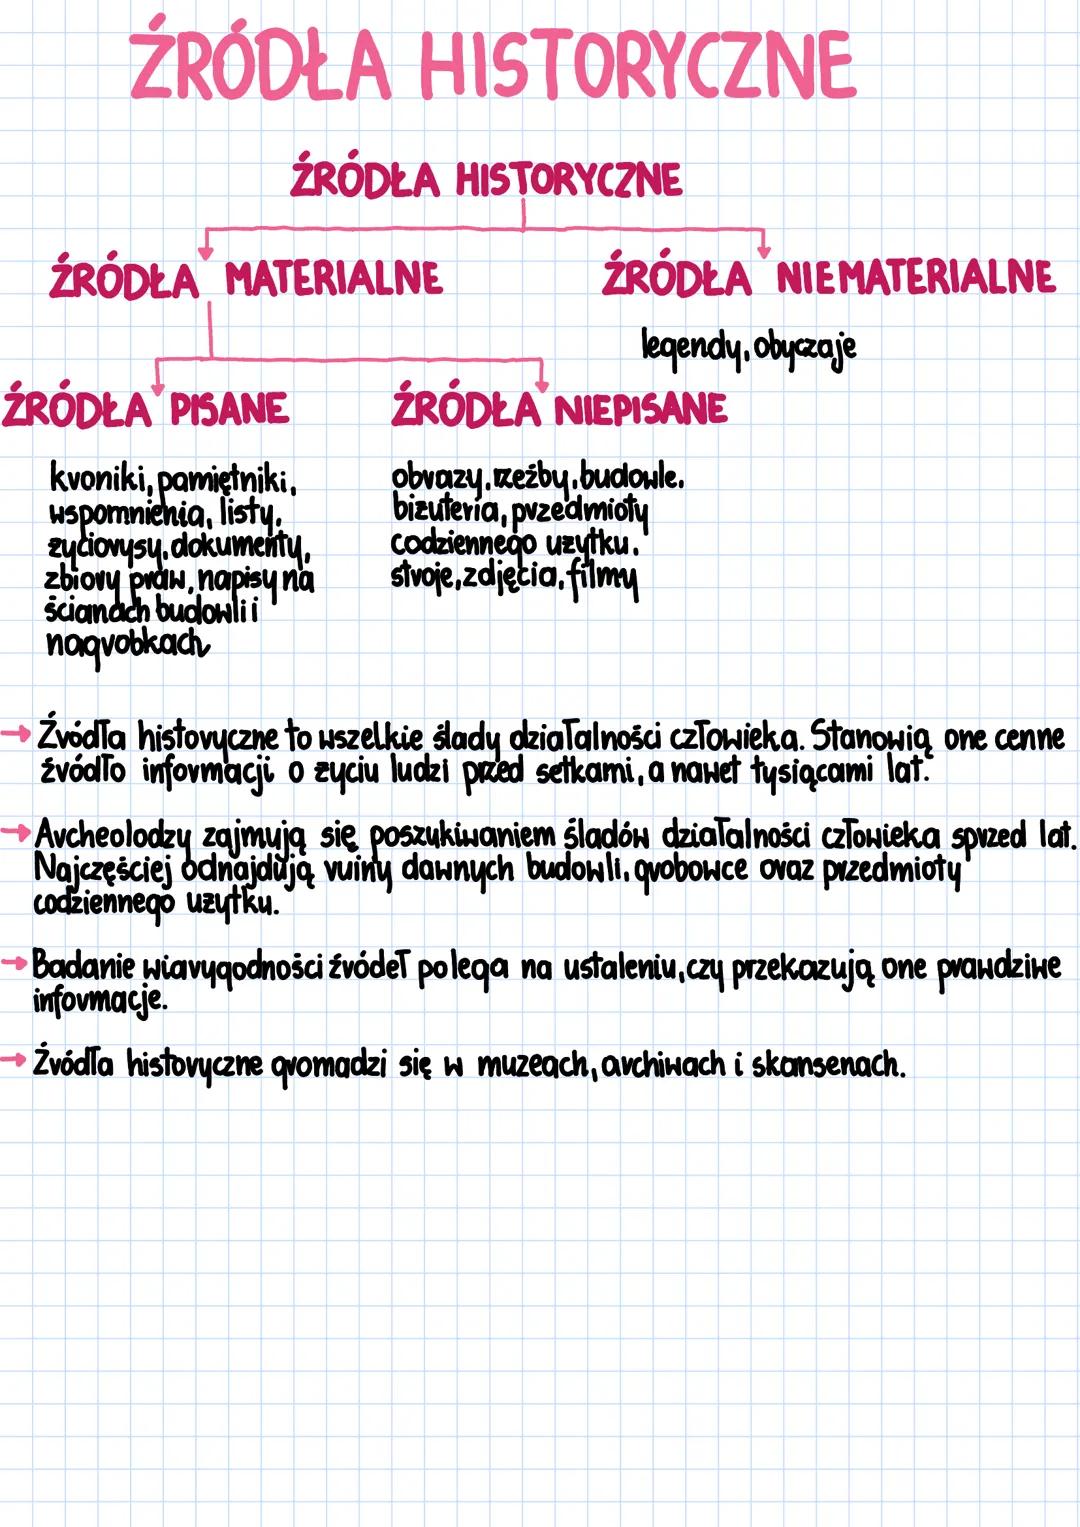 ŹRÓDŁA HISTORYCZNE
ŹRÓDŁA HISTORYCZNE
ŹRÓDŁA MATERIALNE
ŹRÓDŁA NIEMATERIALNE
legendy, obyczaje
ŹRÓDŁA PISANE
ŹRÓDŁA NIEPISANE
kroniki, pamiętniki,
wspomnienia, listy,
życiorysy, dokumenty,
zbiory praw, napisy na
ścianach budowli i
nagrobkach
obrazy, rzeźby, budowle,
biżuteria, przedmioty
codziennego użytku,
stroje, zdjęcia, filmy
→ Źródła historyczne to wszelkie ślady działalności człowieka. Stanowią one cenne
źródło informacji o życiu ludzi przed setkami, a nawet tysiącami lat.
→ Archeolodzy zajmują się poszukiwaniem śladów działalności człowieka sprzed lat.
Najczęściej odnajdują ruiny dawnych budowli, grobowce oraz przedmioty
codziennego użytku.
→ Badanie wiarygodności źródeł polega na ustaleniu, czy przekazują one prawdziwe
informacje.
→ Źródła historyczne gromadzi się w muzeach, archiwach i skansenach.